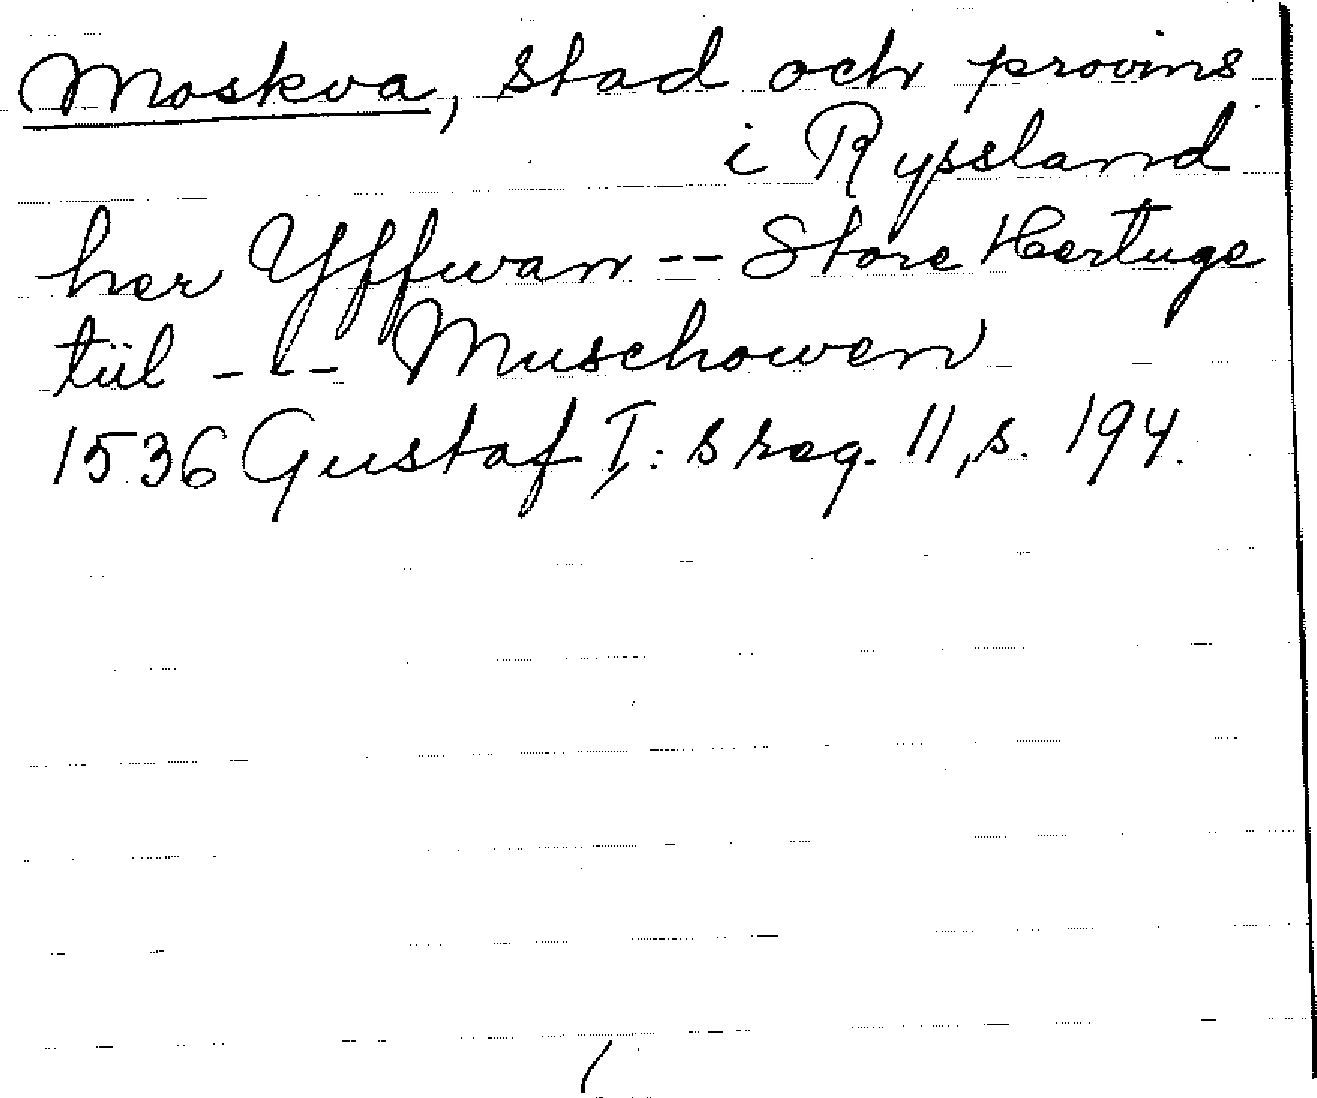 Moskva, stad och provins
i Ryssland
her Yffwan -- Store Hertuge
tiil --- Muschowen
1536 Gustaf I:s reg. 11, s. 194.